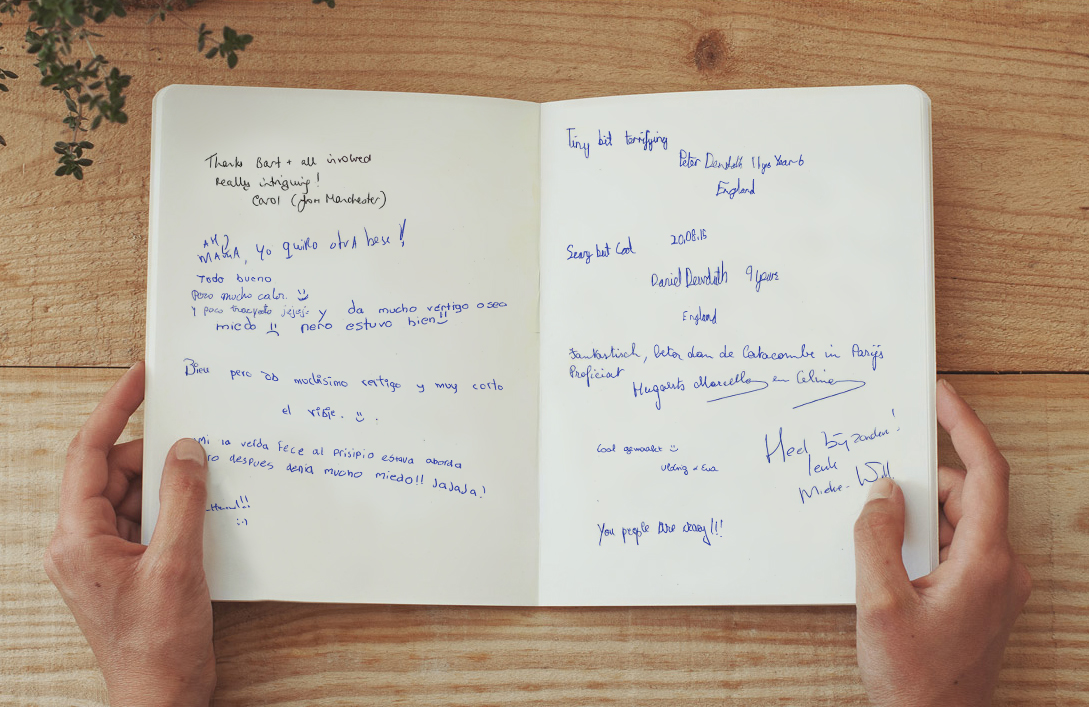 Thanks Bart + all involved
Really intriguing!
Carol (from Manchester)
yo quiero otra
Todo bueno
Pero mucho calor. :)
Y poco trayecto jejeje y da mucho vertigo o sea
miedo :( pero estuvo bien :)
Bien pero da muchisimo vertigo y muy corto
el viaje. :) .
la verda fece al prisipio estava aborda
despues denia mucho miedo!! JaJaJa!
:-)
Tiny bit terrifying
Peter 11 yrs Year 6
England
Scary but Cool 20.08.15
Daniel 9 years
England
Fantastisch, beter dan de Catacombe in Parijs
Proficiat
Marcella en Celine
Cool gemaakt :)
& Eva
Heel bijzonder!
leuk
You people are crazy!!!